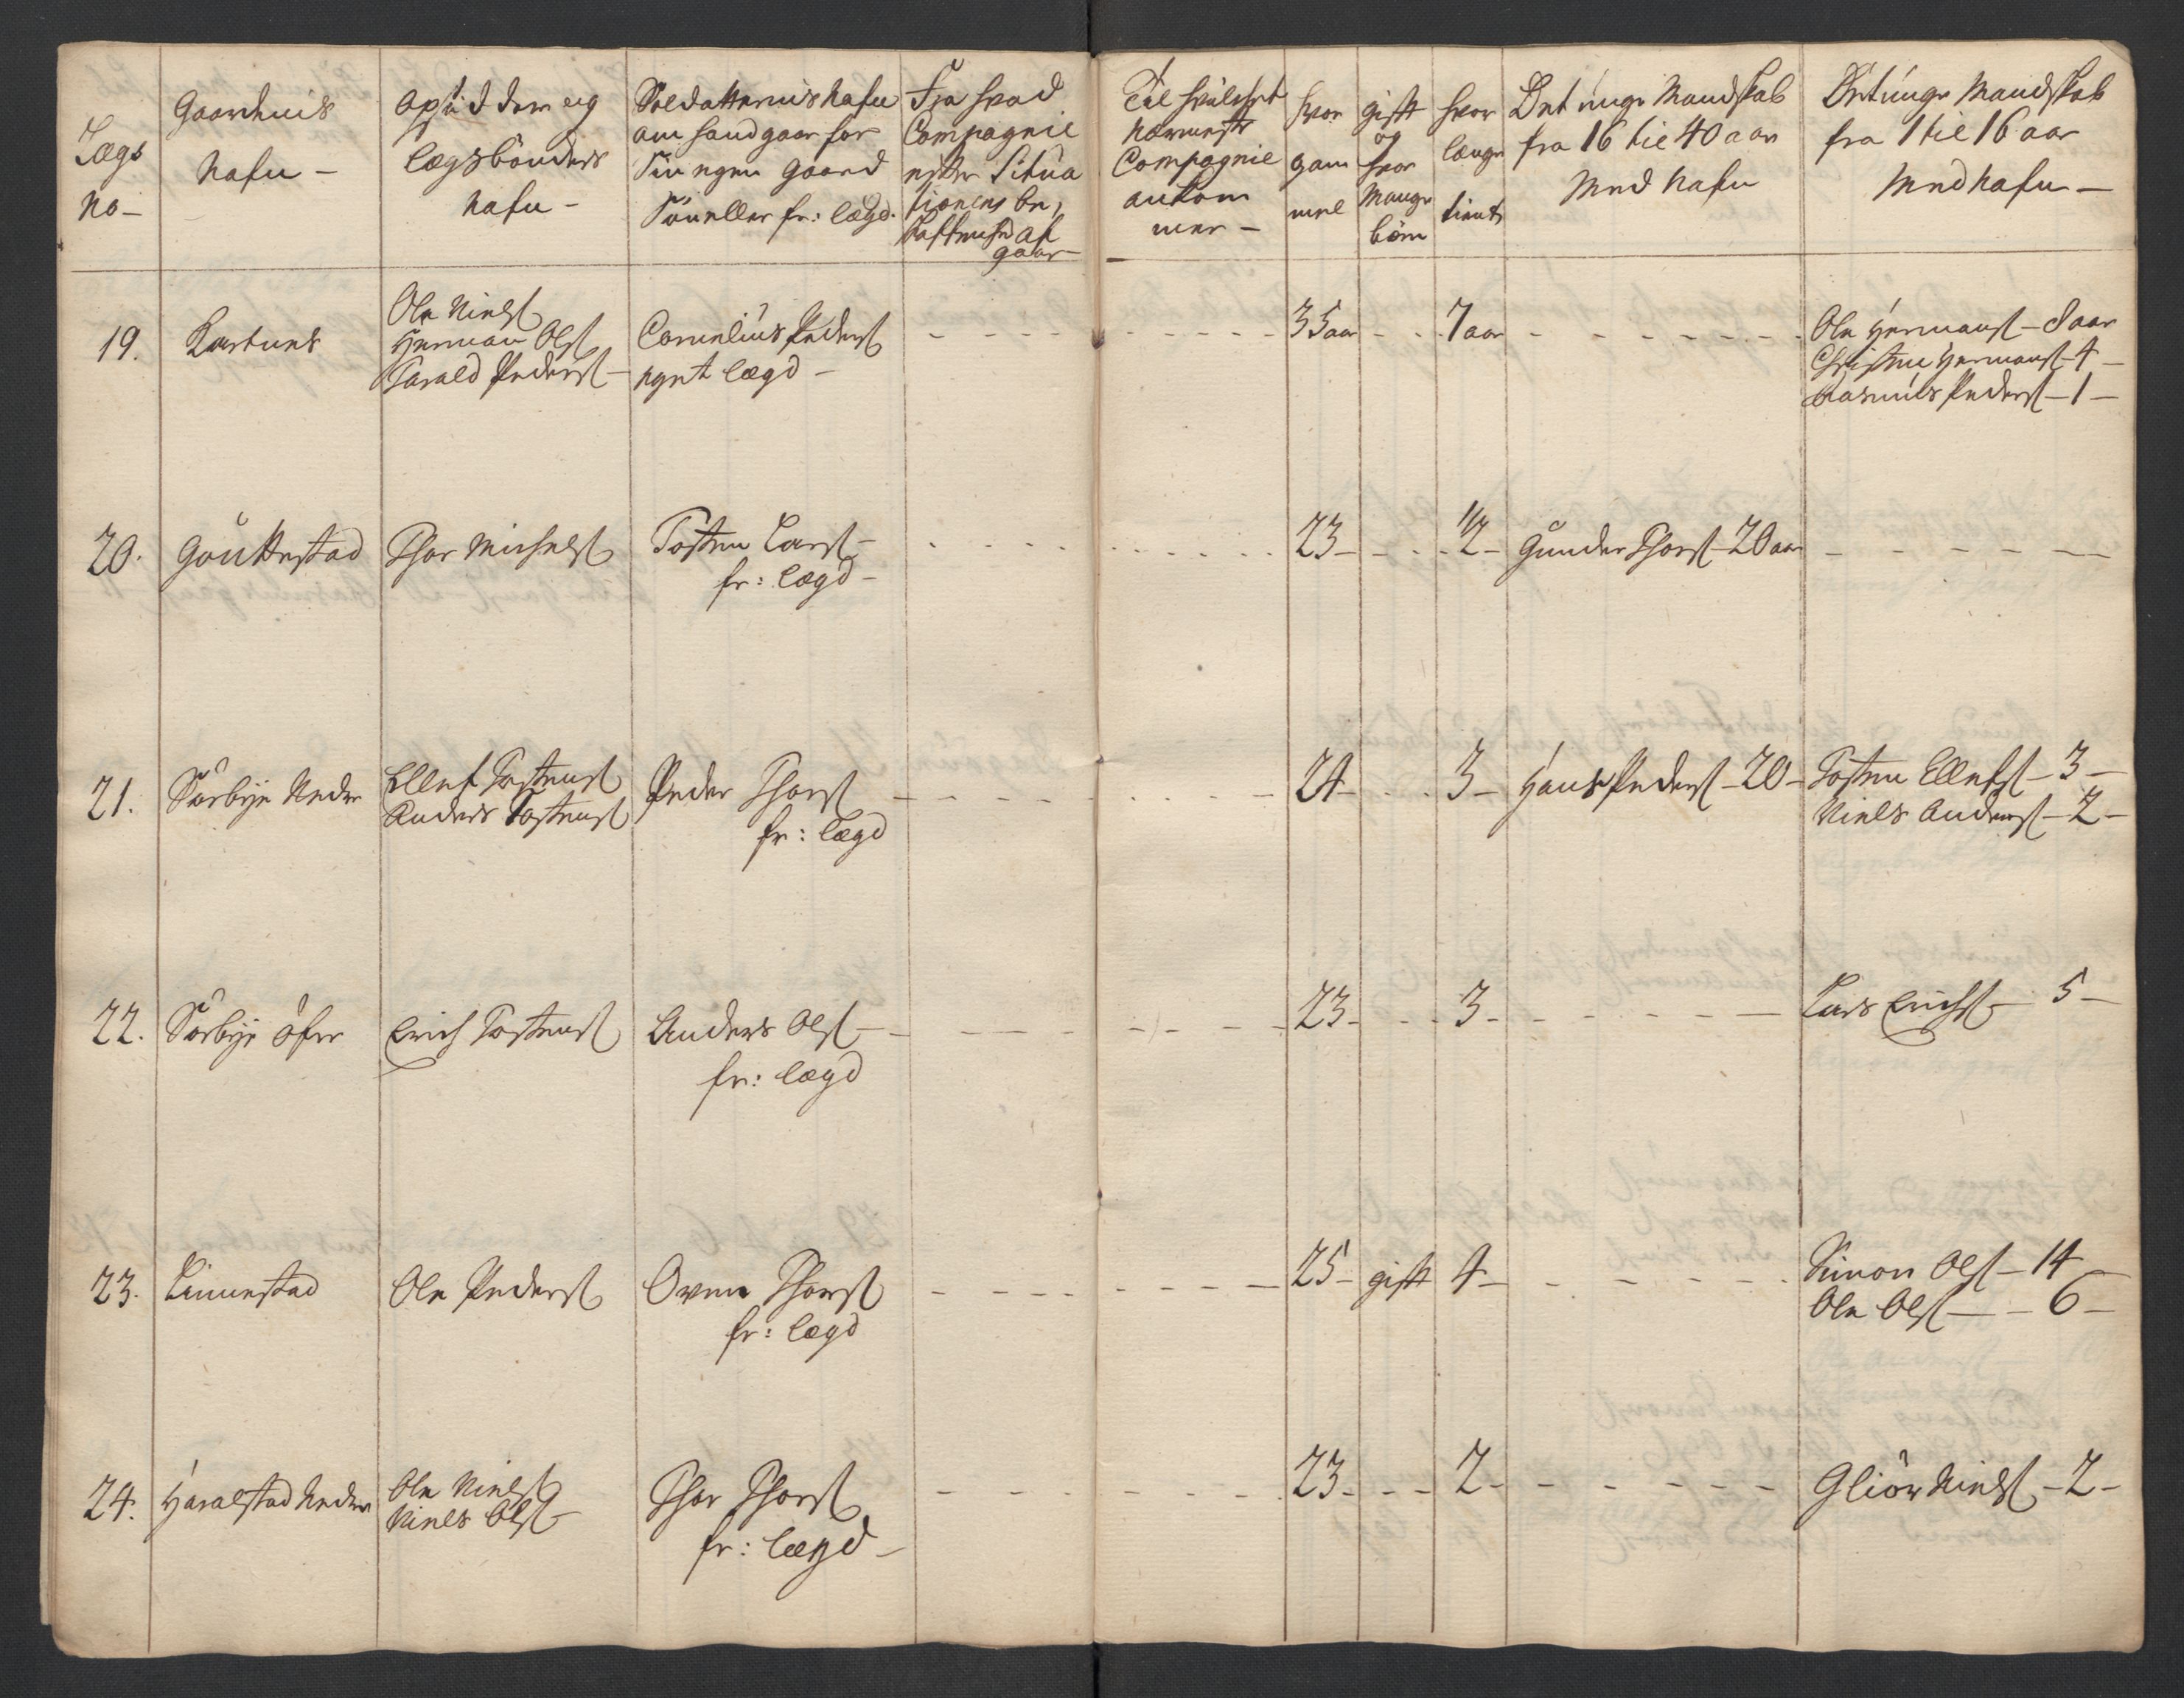 Lægs
No –
Gaardenis
Nafn –
Opsidderne og
lægsbönders
Nafn –
Soldatternis Nafn
om hand gaar for
Sin egen Gaard
Söu eller fr: lægd.
Fra hvad
Compagnie
efter Situa
tionens be,
skaffenhed af
gaar –
Til hvilchet
Nærmeste
Compagnie
ankom
mer –
hvor
gam
mel
gift
og
hvor
Mange
börn
hvor
længe
tient
Det unge Mandskab
fra 16 til 40 aar
Med Nafn
Det unge Mandskab
fra 1 til 16 aar
Med Nafn –
19.
Ole Niels
Herman Ols
Harald Peders –
Cornelius Peders
eget lægd –
35 aar
7 aar
Ole Hermans – 8 aar
Christen Hermans – 4 –
Rasmus Peders – 1 –
20.
Thor Michels
Tosten Lars –
fr: lægd –
23 –
1/2 –
Gunder Thors – 20 aar
21.
Sörbye Neder
Ellef Tostens
Anders Tostens
Peder Thors
fr: lægd
24 –
3 –
Hans Peders – 20 –
Tosten Ellefs – 3 –
Niels Anders – 2 –
22.
Sörbye öfer
Erich Tostens
Anders Ols –
fr: lægd
23 –
3 –
Lars Erichs – 5 –
23.
Linnestad
Ole Peders
Oven Thors
fr: lægd
25 –
gift
4 –
Simon Ols – 14
Ole Ols – 6 –
24.
Haralstad Neder
Ole Niels
Niels Ols –
Thor Thors
fr: lægd –
23 –
2 –
Gliör Niels – 2 –